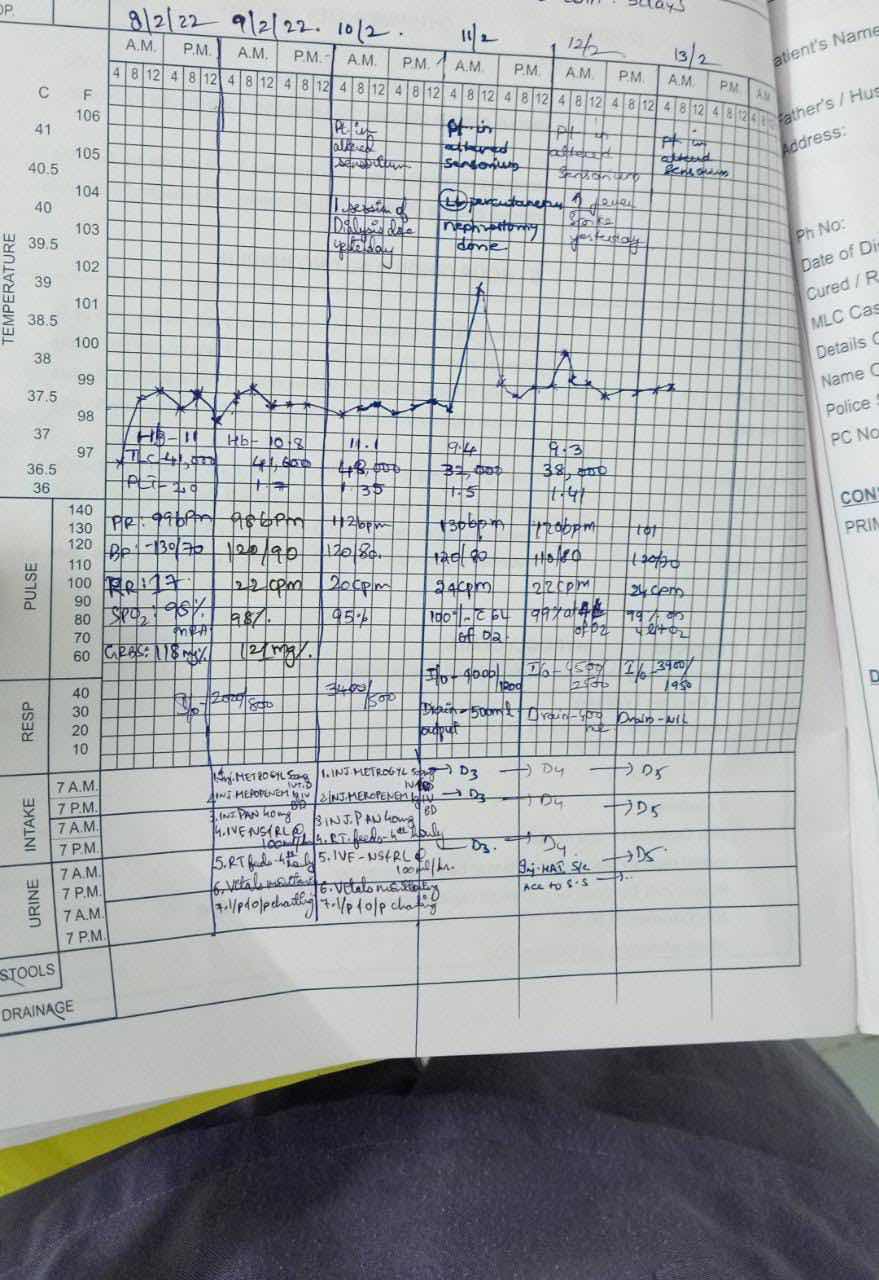 OP.
8/2/22 9/2/22. 10/2. 11/2 12/2 13/2
A.M. P.M. A.M. P.M. A.M. P.M. A.M. P.M. A.M. P.M. A.M. P.M. A.M.
4 8 12 4 8 12 4 8 12 4 8 12 4 8 12 4 8 12 4 8 12 4 8 12 4 8 12 4 8 12 4 8 12 4 8 12 4 8
C F
TEMPERATURE
106
41
105
40.5
104
40
103
39.5
102
39
101
38.5
100
38
99
37.5
98
37
97
36.5
36
Pt in
altered
sensorium
1 session of
Dialysis done
yesterday
Pt in
altered
sensorium
Lt percutaneous
nephrostomy
done
Pt in
altered
sensorium
fever
spike
yesterday
Pt in
altered
sensorium
Hb-11 Hb-10.8 11.1 9.4 9.3
TLC-41,000 41,600 48,000 37,000 38,000
PLT-2.0 1.7 1.35 1.5 1.41
PULSE
140
130
120
110
100
90
80
70
60
PR: 99bpm 98bpm 112bpm 130bpm 120bpm 101
BP:-130/70 120/90 120/80. 120/80 110/80 120/70
RR:17 22cpm 20cpm 24cpm 22cpm 24cpm
SPO2: 98% 98%. 95% 100%-c 6L 99% 99%
of O2 of O2
GRBS: 118mg% 121mg%.
I/o-4000/1200 I/o-4500/2500 I/o-3900/1950
I/o-2000/800 3400/500
Drain-500ml Drain-400 Drain-NIL
output ml
RESP
40
30
20
10
INTAKE
7 A.M.
7 P.M.
7 A.M.
7 P.M.
URINE
7 A.M.
7 P.M.
7 A.M.
7 P.M.
STOOLS
DRAINAGE
1.Inj.METROGYL 500mg
2.INJ.MEROPENEM
3.INJ PAN 40mg
4.IVF NS&RL@
100ml/hr
5.RT feeds-4th hourly
6.Vitals monitoring
7.I/p & O/p charting
1.INJ.METROGYL 500mg → D3 → D4 → D5
2.INJ.MEROPENEM → D3 → D4 → D5
BD
3 INJ.PAN 40mg
4.RT.feeds-4th hourly → D3. → D4 → D5
5.IVF-NS&RL@
100ml/hr.
6.Vitals monitoring
7.I/p & O/p charting
Inj.HAI S/c
Acc to S.S →
Patient's Name
Father's / Hus
Address:
Ph No:
Date of Di
Cured / R
MLC Cas
Details
Name
Police
PC No
CON
PRIM